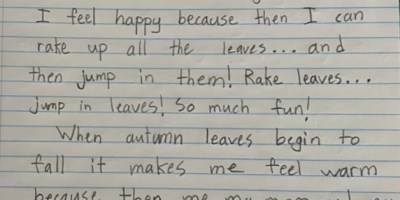 I feel happy because then I can
rake up all the leaves... and
then jump in them! Rake leaves...
jump in leaves! So much fun!
When autumn leaves begin to
fall it makes me feel warm
because then me my mom